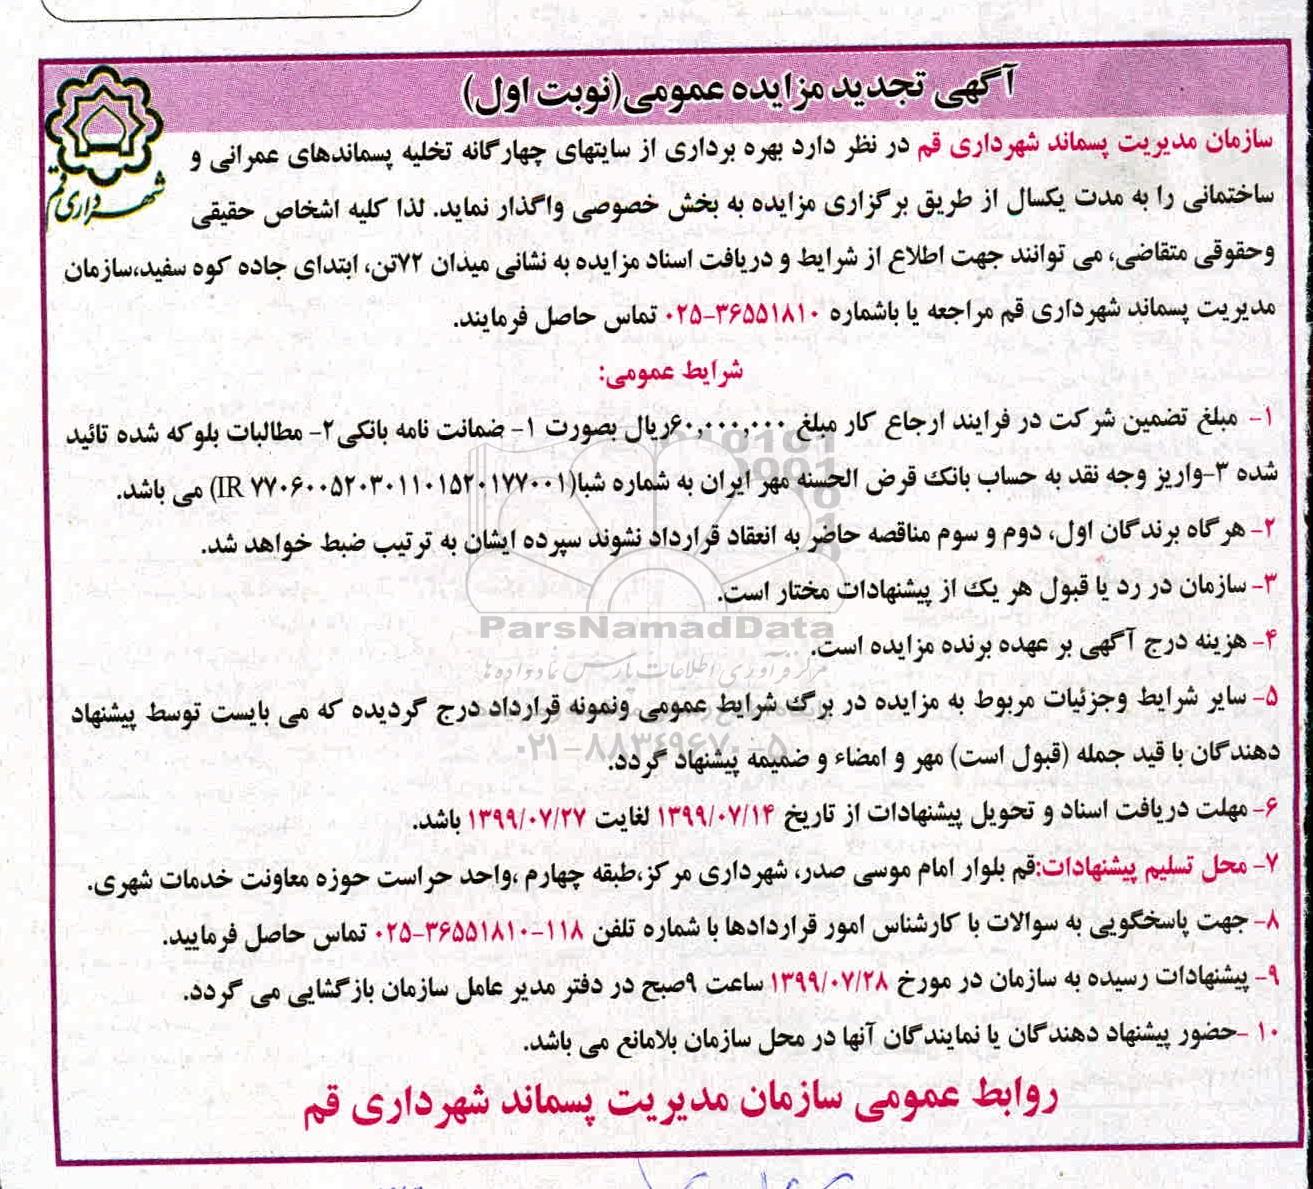 آگهی تجدید مزایده عمومی(نوبت اول)
شهرداری قم
سازمان مدیریت پسماند شهرداری قم در نظر دارد بهره برداری از سایتهای چهارگانه تخلیه پسماندهای عمرانی و
ساختمانی را به مدت یکسال از طریق برگزاری مزایده به بخش خصوصی واگذار نماید. لذا کلیه اشخاص حقیقی
وحقوقی متقاضی، می توانند جهت اطلاع از شرایط و دریافت اسناد مزایده به نشانی میدان ۷۲تن، ابتدای جاده کوه سفید،سازمان
مدیریت پسماند شهرداری قم مراجعه یا باشماره ۳۶۵۵۱۸۱۰-۰۲۵ تماس حاصل فرمایند.
شرایط عمومی:
۱- مبلغ تضمین شرکت در فرایند ارجاع کار مبلغ ۶۰,۰۰۰,۰۰۰ریال بصورت ۱- ضمانت نامه بانکی۲- مطالبات بلوکه شده تائید
شده ۳-واریز وجه نقد به حساب بانک قرض الحسنه مهر ایران به شماره شبا(IR ۷۷۰۶۰۰۵۲۰۳۰۱۱۰۱۵۲۰۱۷۷۰۰۱) می باشد.
۲- هرگاه برندگان اول، دوم و سوم مناقصه حاضر به انعقاد قرارداد نشوند سپرده ایشان به ترتیب ضبط خواهد شد.
۳- سازمان در رد یا قبول هر یک از پیشنهادات مختار است.
ParsNamadData
۴- هزینه درج آگهی بر عهده برنده مزایده است.
مرکز فرآوری اطلاعات پارس نماد داده ها
۵- سایر شرایط وجزئیات مربوط به مزایده در برگ شرایط عمومی ونمونه قرارداد درج گردیده که می بایست توسط پیشنهاد
۰۲۱-۸۸۳۴۹۶۷۰-۵
دهندگان با قید جمله (قبول است) مهر و امضاء و ضمیمه پیشنهاد گردد.
۶- مهلت دریافت اسناد و تحویل پیشنهادات از تاریخ ۱۳۹۹/۰۷/۱۴ لغایت ۱۳۹۹/۰۷/۲۷ باشد.
۷- محل تسلیم پیشنهادات:قم بلوار امام موسی صدر، شهرداری مرکز،طبقه چهارم ،واحد حراست حوزه معاونت خدمات شهری.
۸- جهت پاسخگویی به سوالات با کارشناس امور قراردادها با شماره تلفن ۱۱۸-۳۶۵۵۱۸۱۰-۰۲۵ تماس حاصل فرمایید.
۹- پیشنهادات رسیده به سازمان در مورخ ۱۳۹۹/۰۷/۲۸ ساعت ۹صبح در دفتر مدیر عامل سازمان بازگشایی می گردد.
۱۰ -حضور پیشنهاد دهندگان یا نمایندگان آنها در محل سازمان بلامانع می باشد.
روابط عمومی سازمان مدیریت پسماند شهرداری قم